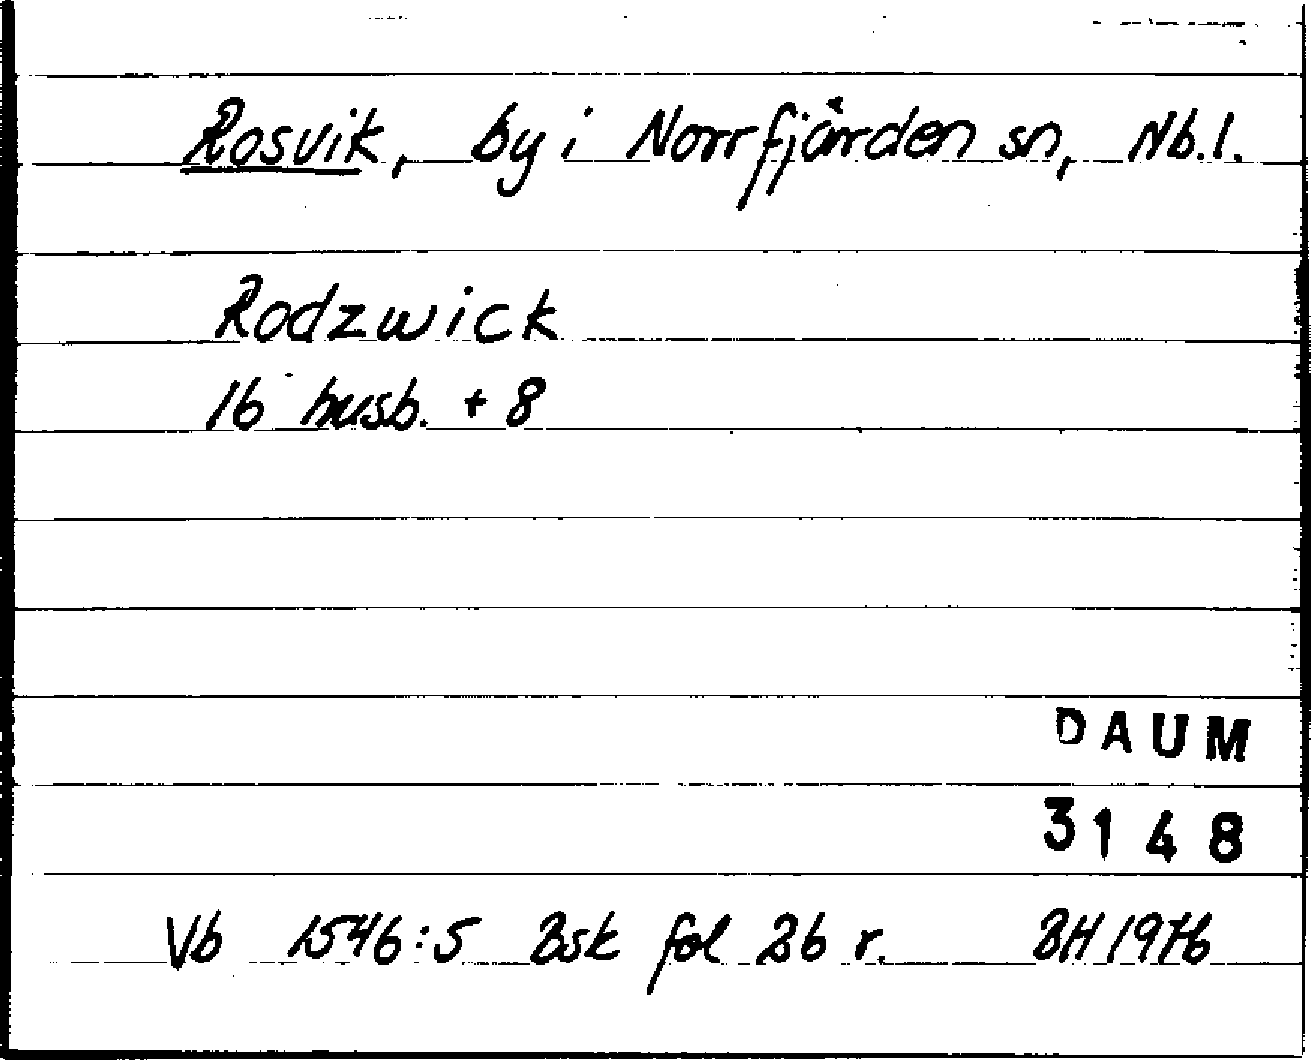 Rosvik, by i Norrfjärden sn, Nb.l.
Rodzwick
16 husb. + 8
DAUM
3148
Vb 1546:5 Bsk fol 26 r. BH 1976